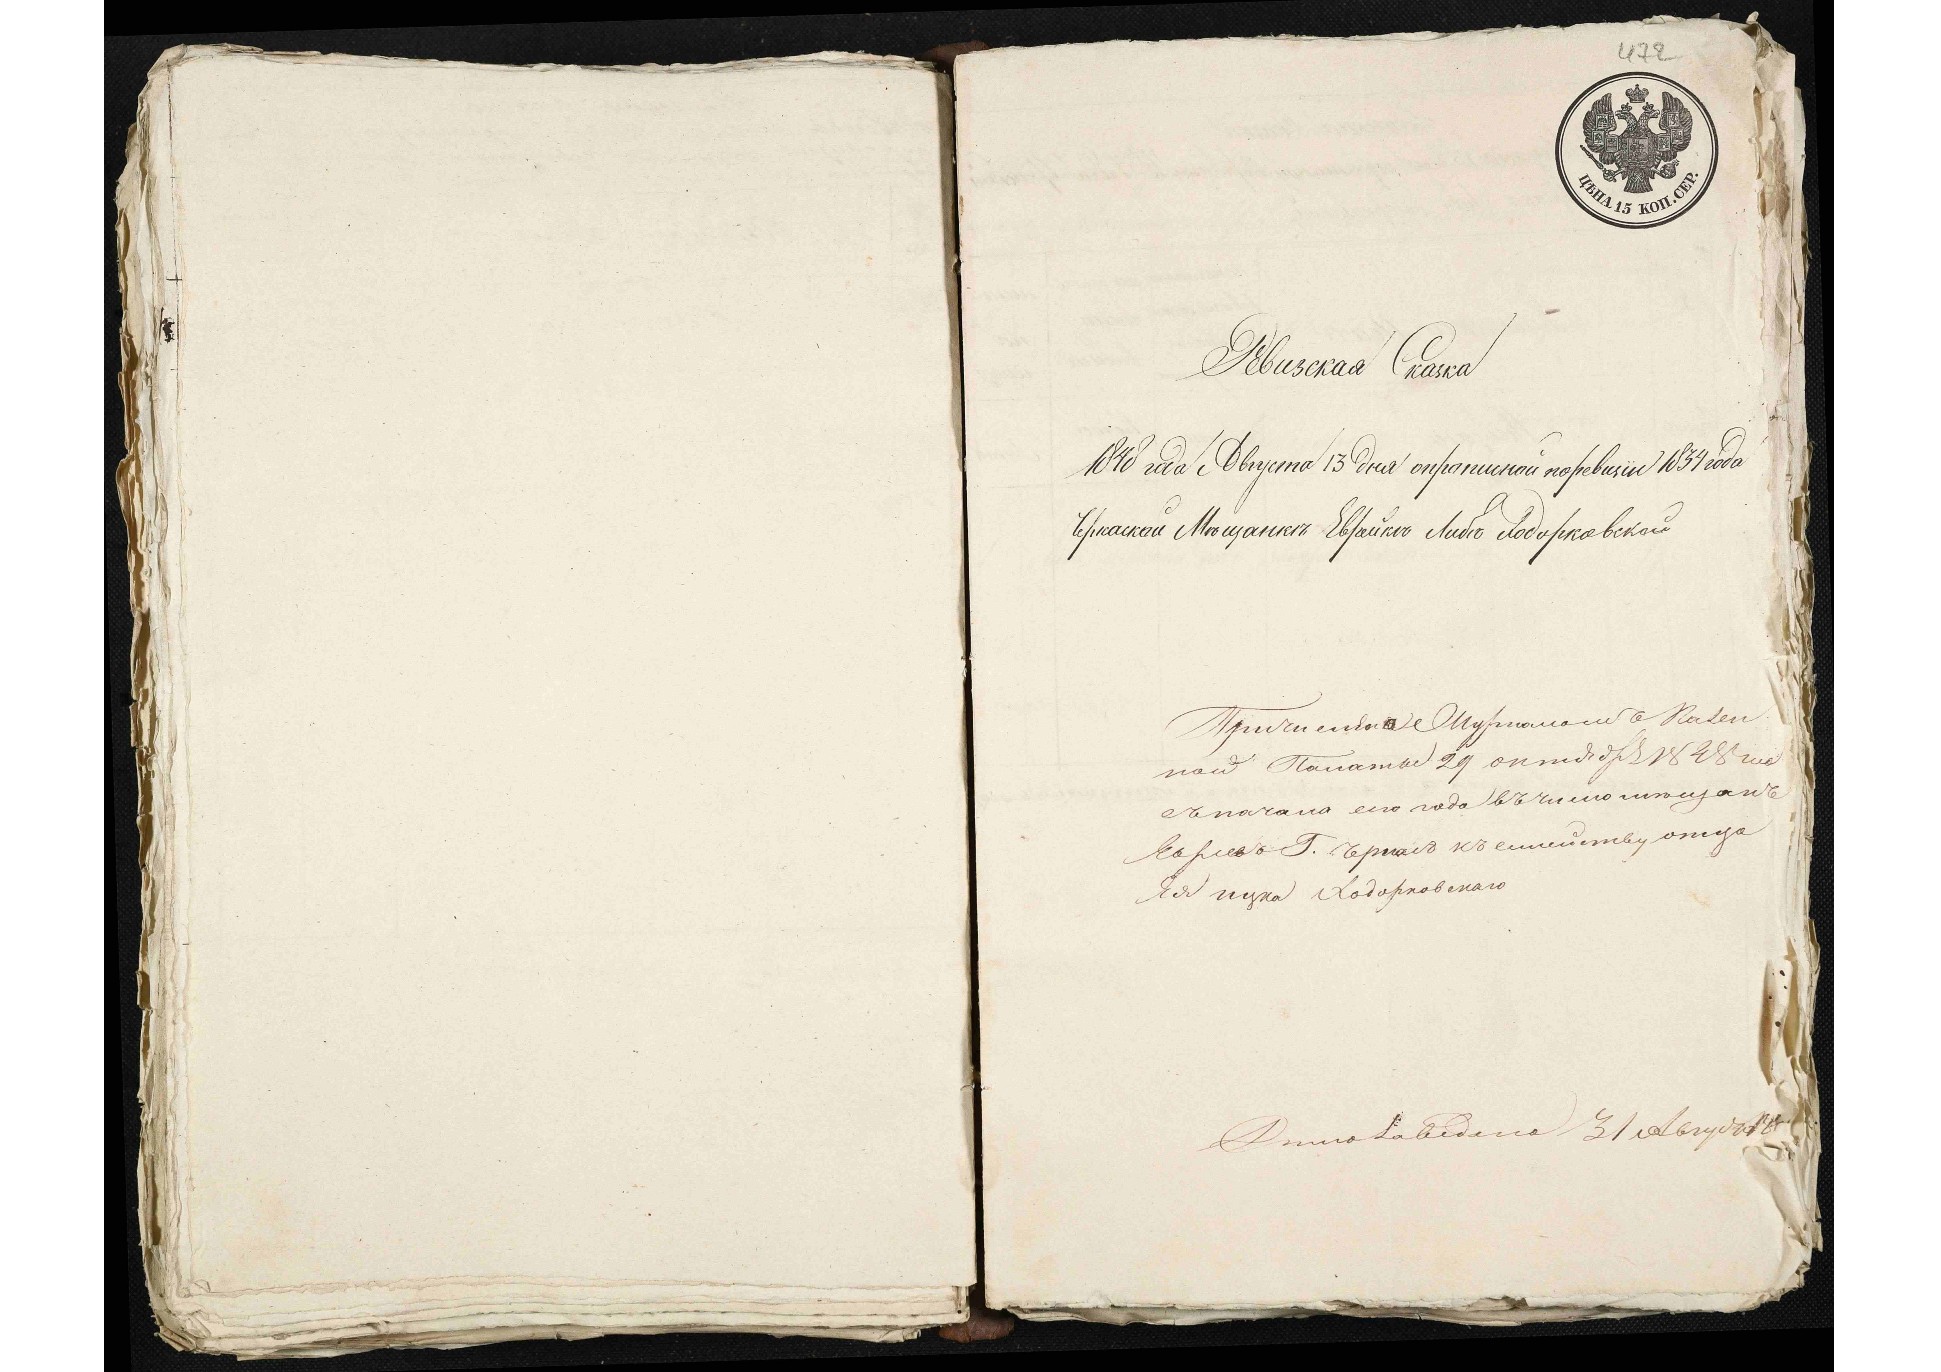 472
ЦѢНА 15 КОП. СЕР.
Ревизская Сказка
1848 года Августа 13 дня опрописной поревизіи 1834 года
Черкаской Мѣщанкѣ Еврейкѣ Либѣ Ходорковской
Причислена Журналомъ Казен
ной Палаты 29 октября 1848 года
съ начала его года въ число мѣщанъ
Евреевъ Г. Черкасъ къ семейству отца
Ея Ицка Ходорковскаго
31 Августа